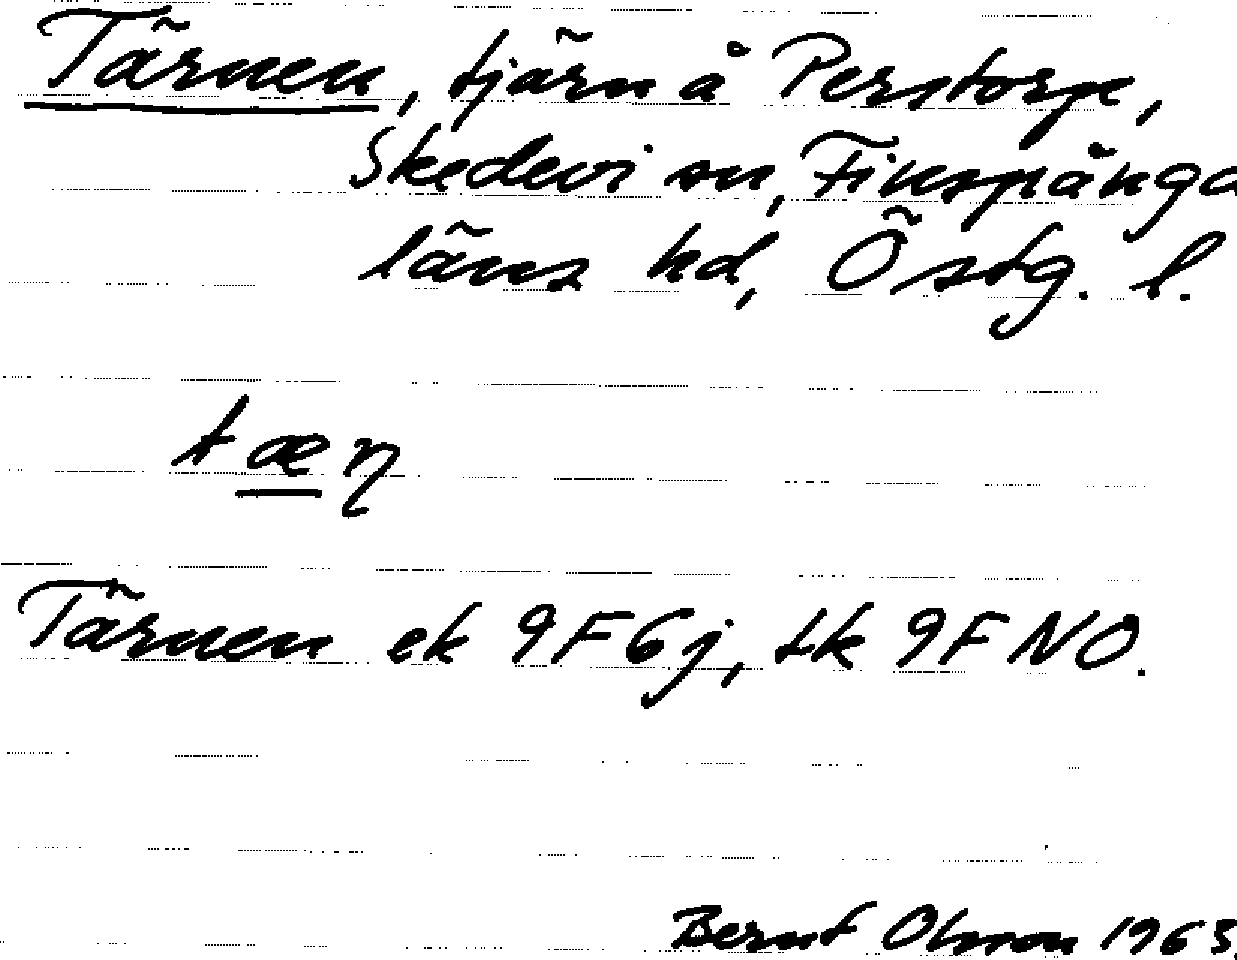 Tärnen, tjärn å Perstorp,
Skedevi sn, Finspånga
läns hd, Östg. l.
tæη
Tärnen ek 9F6j, tk 9F NO.
Bernt Olsson 1963.